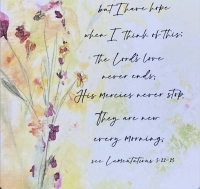 but I have hope
when I think of this:
The Lord's love
never ends;
His mercies never stop.
They are new
every morning;
see Lamentations 3:22-23